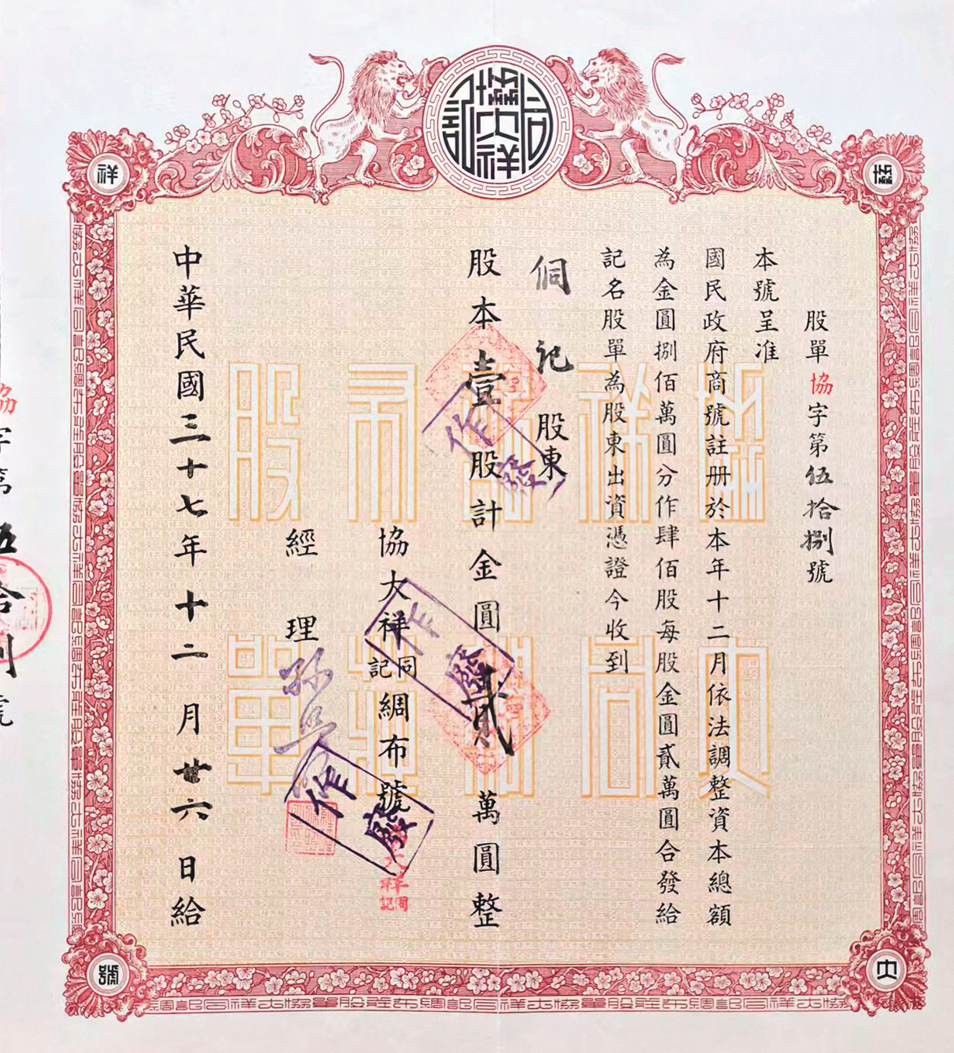 股單協字第伍拾捌號
本號呈准
國民政府商號註册於本年十二月依法調整資本總額
為金圓捌佰萬圓分作肆佰股每股金圓貳萬圓合發給
記名股單為股東出資憑證今收到
侗記股東
股本壹股計金圓貳萬圓整
協大祥同記綢布號
經理 孫
中華民國三十七年十二月廿六日給
作廢
作廢
作廢
協大祥
同記
協
祥
大
號
協字第伍拾捌號